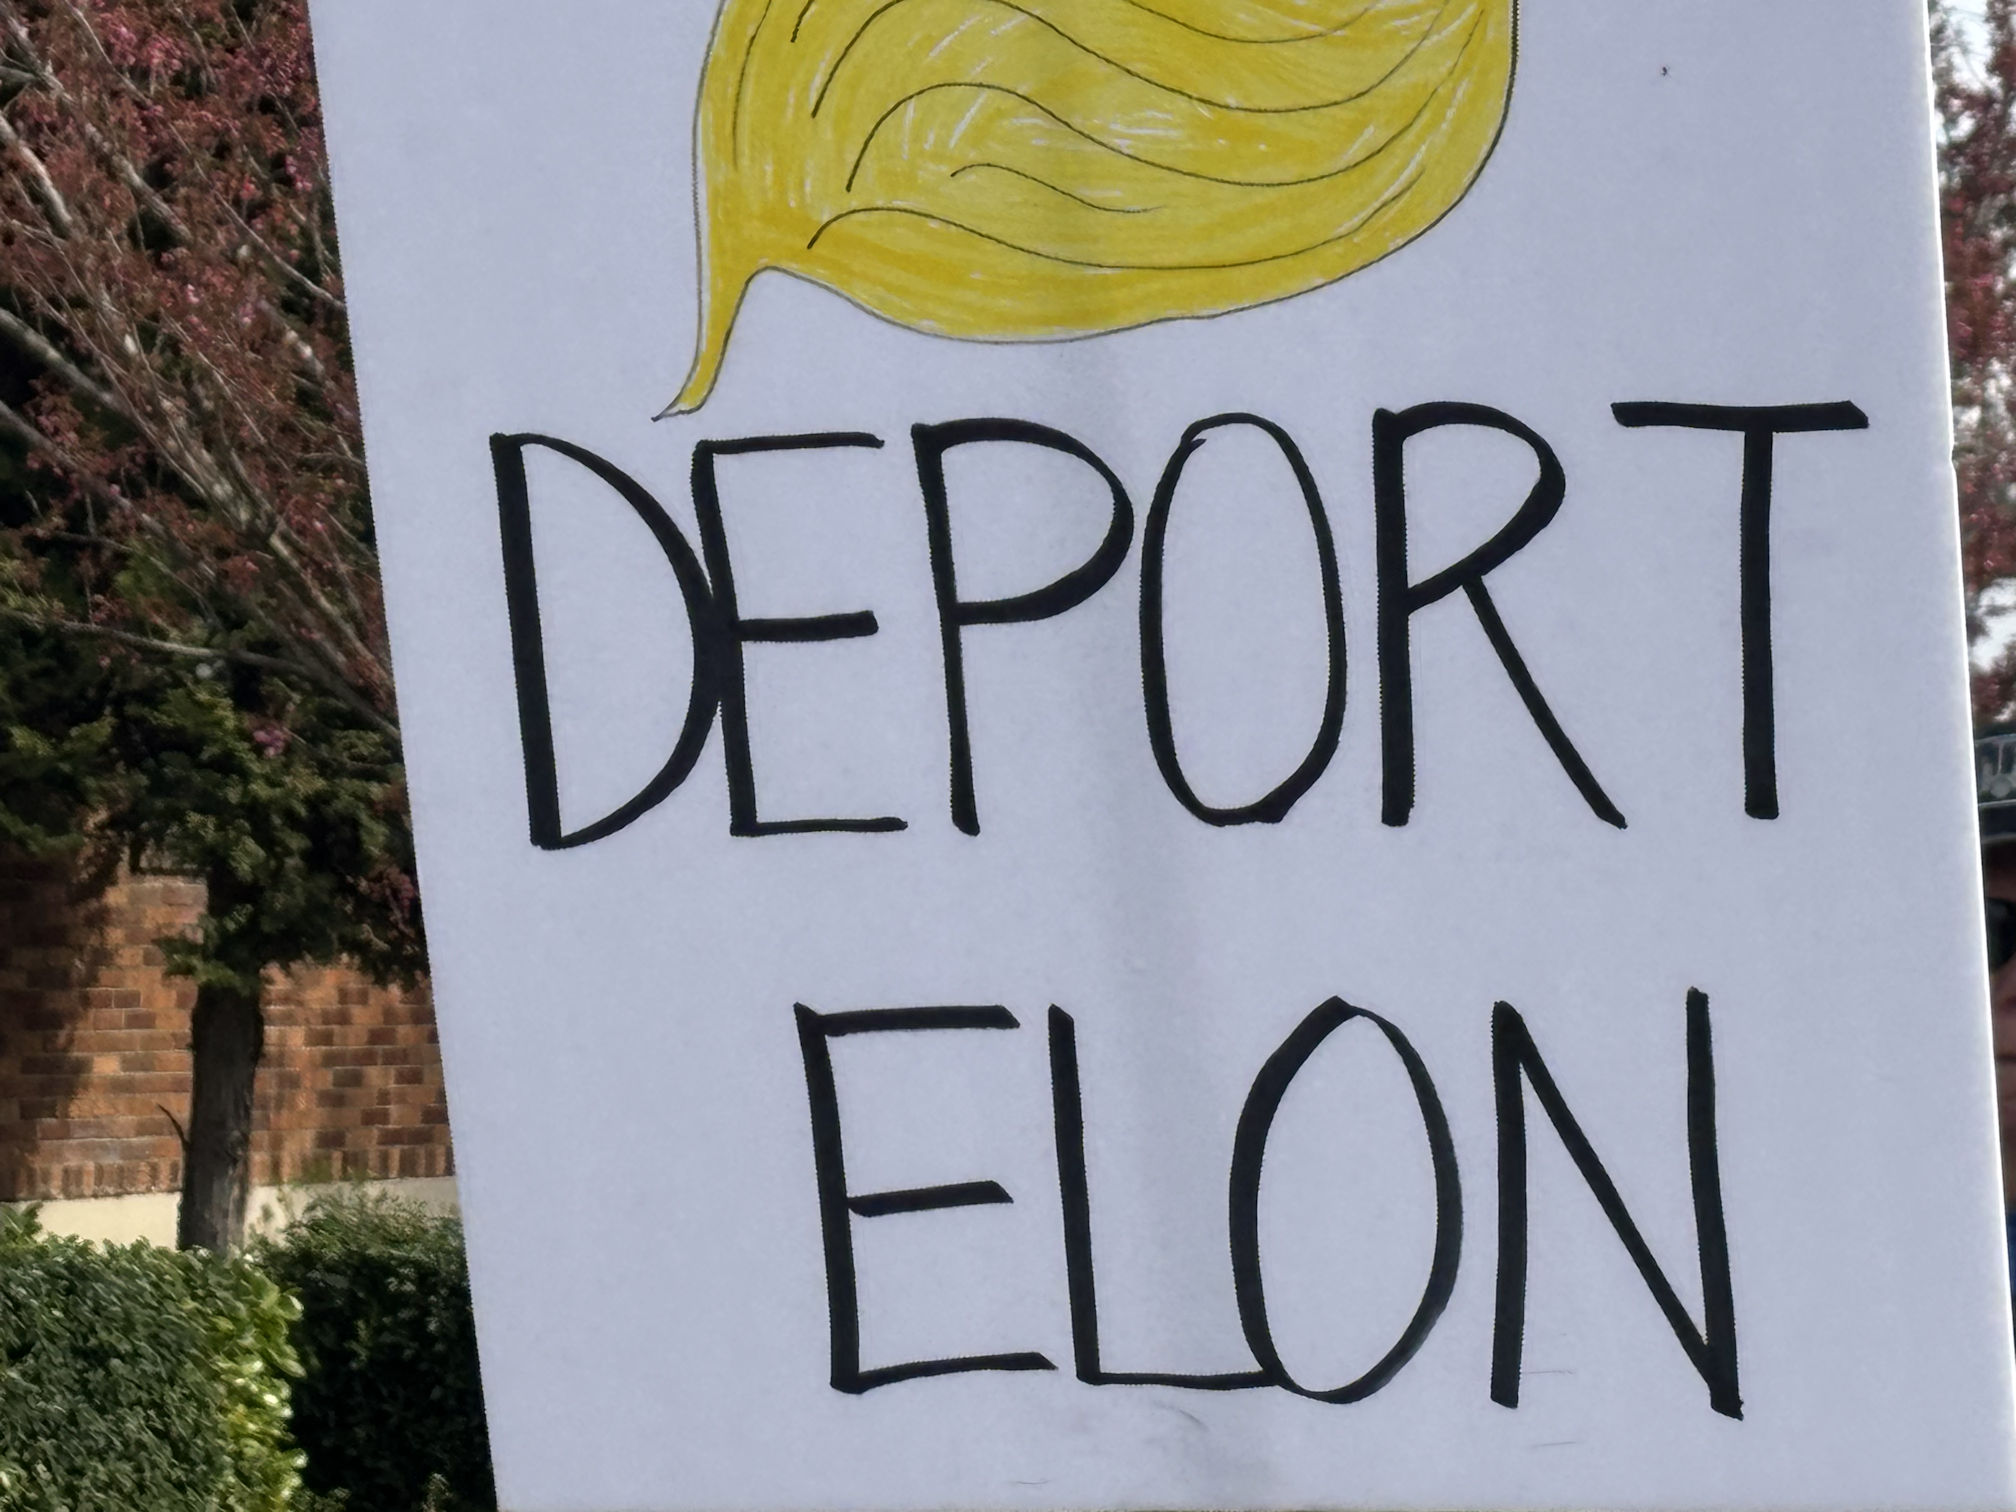 DEPORT
ELON